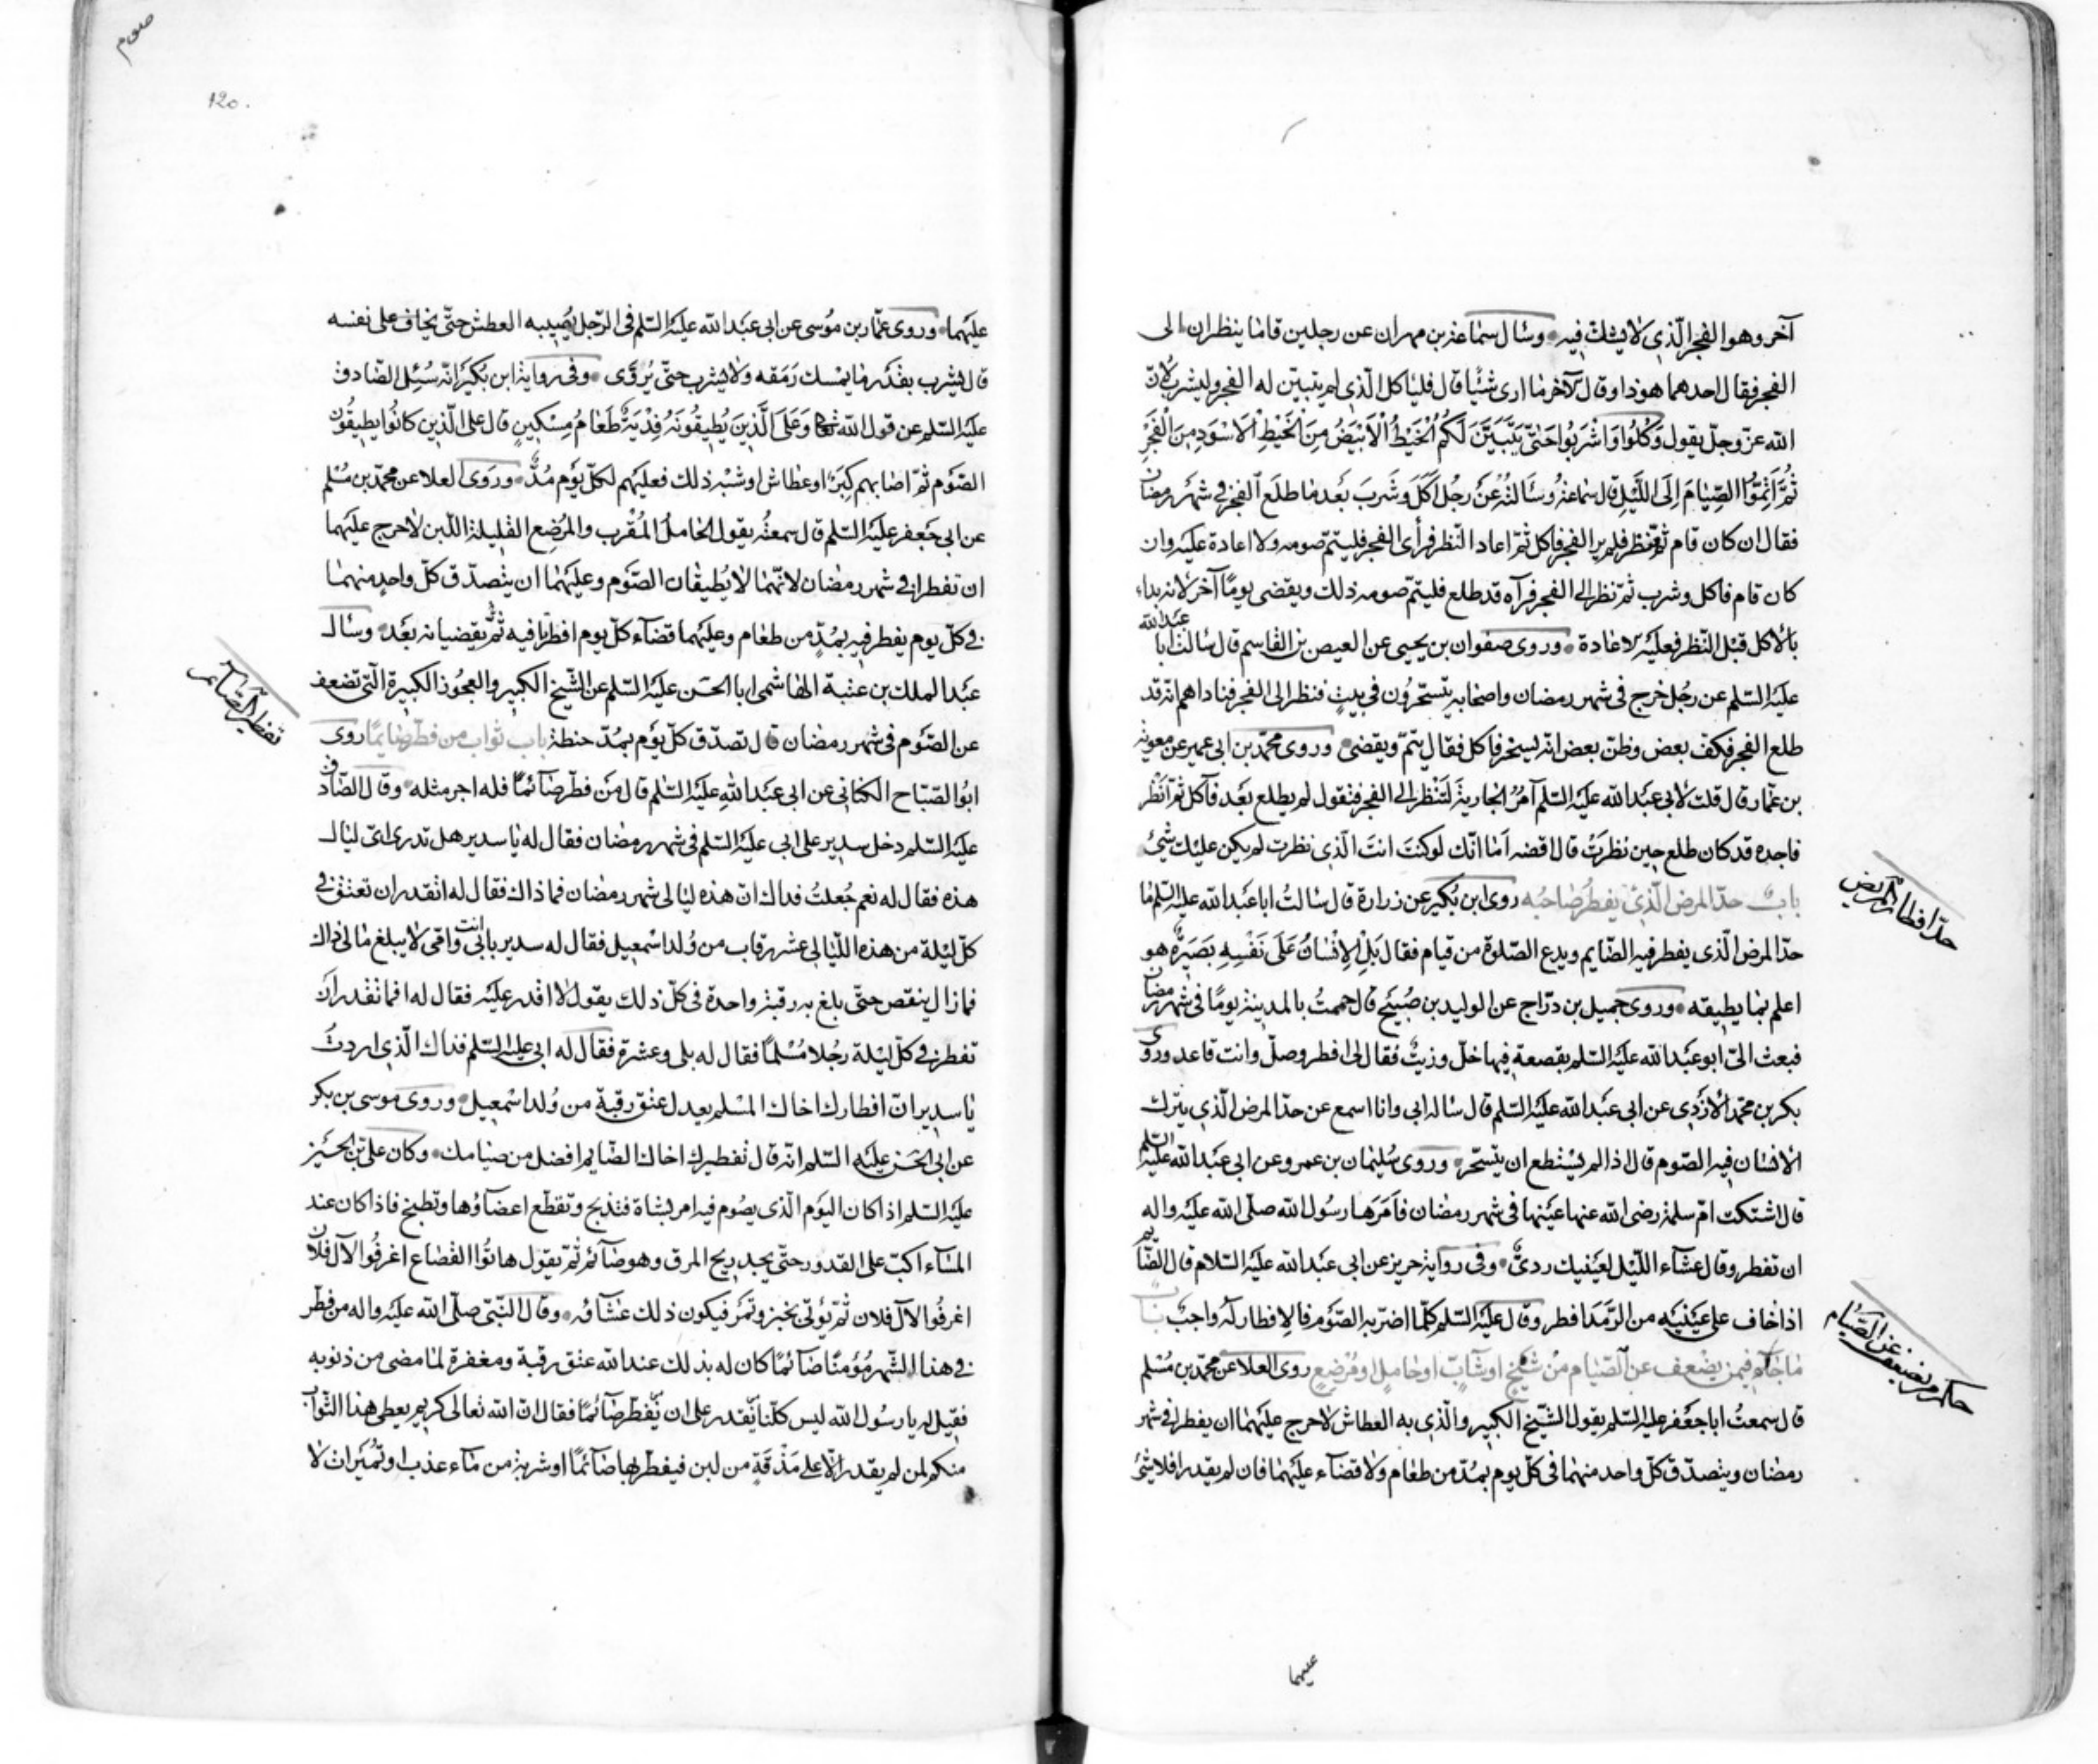 آخر وهو الفجر الّذي لا يشكّ فيه وسأل سماعة بن مهران عن رجلين قاما ينظران الى
الفجر فقال احدهما هوذا وقال الآخر ما ارى شيئا قال فليأكل الّذي لم يتبيّن له الفجر وليشرب لانّ
الله عزّ وجلّ يقول وَكُلُوا وَاشْرَبُوا حَتّىٰ يَتَبَيَّنَ لَكُمُ الْخَيْطُ الْاَبْيَضُ مِنَ الْخَيْطِ الْاَسْوَدِ مِنَ الْفَجْرِ
ثُمَّ اَتِمُّوا الصِّيٰامَ اِلَى اللَّيْلِ قال سماعة وسَاَلتُهُ عَن رجُل اَكَلَ وشَرِبَ بَعد ما طلَع الفجر في شهر رمضان
فقال ان كان قام فنظر فلم ير الفجر فاكل ثمّ اعاد النّظر فرأى الفجر فليتمّ صومه ولا اعادة عليه وان
كان قام فاكل وشرب ثمّ نظر الى الفجر فرآه قد طلع فليتمّ صومه ذلك ويقضي يومًا آخر لانه بداء
بالأكل قبل النّظر فعليه الاعادة وروى صفوان بن يحيى عن العيص بن القاسم قال سألت ابا عبد الله
عليه السّلم عن رجُل خرج في شهر رمضان واصحابه يتسحّرُون في بيتٍ فنظر الى الفجر فناداهم انّه قد
طلع الفجر فكفّ بعض وظنّ بعض انّه ليسخر فاكل فقال يتمّ ويقضى وروى محمّد بن ابى عمير عن معوية
بن عمّار قال قلت لابى عبد الله عليه السّلم آمُرُ الجارية لتنظر الى الفجر فتقول لم يطلع بَعد فآكل ثمّ اَنْظُر
فاجده قد كان طلع حين نظرَتْ قال اقضه اَمٰا انّك لو كنتَ انتَ الّذي نظرت لم يكن عليك شئ
باب حدّ المرض الّذي يفطر صاحبُه روى ابن بُكير عن زرارة قال سالتُ ابا عبد الله عليه السّلم ما
حدّ المرض الّذى يفطر فيه الصّايم ويدع الصّلوة من قيام فقال بَلِ الْاِنْسٰانُ عَلىٰ نَفْسِهِ بَصيرَةٌ هو
اعلم بما يطيقه وروى جميل بن درّاج عن الوليد بن صُبَيح قال حممتُ بالمدينة يومًا في شهر رمضان
فبعث الىّ ابو عبد الله عليه السّلم بقصعة فيها خلّ وزيتٌ فقال لى افطر وصلّ وانت قاعد وروى
بكر بن محمّد الازدِى عن ابى عبد الله عليه السّلم قال سأله ابى وانا اسمع عن حدّ المرض الّذي يترك
الانسان فيه الصّوم قال اذا لم يستطع ان يتسحّر وروى سُليمان بن عمرو عن ابى عبد الله عليه السّلم
قال اشتكت امّ سلمة رضى الله عنها عينها في شهر رمضان فاَمَرَها رسُول الله صلّى الله عليه واله
ان تفطر وقال عشاء اللّيل لعينيك ردىٌّ وفى رواية حريز عن ابى عبد الله عليه السّلام قال الصّايم
اذا خاف على عينيه من الرَّمَد افطر وقال عليه السّلم كلّما اضرّ به الصّوم فالافطار له واجبٌ باب
ما جاء فيمن يضعف عن الصّيام من شيخٍ او شابٍّ او حاملٍ او مُرضعٍ روى العلا عن محمّد بن مُسْلم
قال سمعتُ ابا جعفر عليه السّلم يقول الشّيخ الكبير والّذى به العطاش لا حرج عليهما ان يفطرا في شهر
رمضان ويتصدّق كلّ واحد منهما فى كلّ يوم بمُدّ من طعام ولا قضاء عليهما فان لم يقدرا فلا شئ
حدّ افطار المريض
حكم من يضعف عن الصّيام
عليهما
صوم
120.
عليهما وروى عمّار بن مُوسى عن ابى عبد الله عليه السّلم فى الرّجل يُصيبه العطش حتّى يخاف على نفسه
قال يشرب بقدر ما يُمْسك رَمَقه ولا يشرب حتّى يُروَّى وفى رواية ابن بُكير انّه سُئِل الصّادق
عليه السّلم عن قول الله تعالى وَعَلَى الَّذينَ يُطيقُونَهُ فِدْيَةٌ طَعٰامُ مِسْكينٍ قال على الّذين كانُوا يطيقُون
الصّوم ثمّ اصابهم كِبَر او عطاش او شبْه ذلك فعليهم لكلّ يَوم مُدٌّ ورَوى العلا عن محمّد بن مُسْلم
عن ابى جَعفر عليه السّلم قال سمعتُه يقول الحامل المُقْرب والمُرضِع القليلة اللّبن لا حرج عليهما
ان تفطرا في شهر رمضان لانّهما لا يُطيقان الصّوم وعليهما ان يتصدّق كلّ واحدٍ منهما
فى كلّ يوم يفطر فيه بمُدٍّ من طعام وعليهما قضاء كلّ يوم افطرتا فيه ثمّ يقضيانه بعد وسأل
عبد الملك بن عتبة الهاشمى ابا الحسَن عليه السّلم عن الشّيخ الكبير والعجُوز الكبيرة الّتى تضعف
عن الصّوم فى شهر رمضان قال تصدّق كلّ يَوم بمُدّ حنطة باب ثواب من فطّر صايمًا روى
ابُو الصّباح الكنانى عن ابى عبد الله عليه السّلم قال مَن فطّر صائمًا فله اجر مثله وقال الصّادق
عليه السّلم دخل سدير على ابى عليه السّلم فى شهر رمضان فقال له يا سدير هل تدرى اىّ ليال
هذه فقال له نعم جُعلتُ فداك انّ هذه ليالى شهر رمضان فما ذاك فقال له اتقدر ان تعتق فى
كلّ ليلة من هذه اللّيالى عشر رقاب من وُلد اسْمعيل فقال له سدير بابى انت وامّى لا يبلغ مالى ذاك
فما زال ينقص حتّى بلغ به رقبة واحدة فى كلّ ذلك يقول لا اقدر عليه فقال له افما تقدر ان
تفطر فى كلّ ليلة رجُلا مُسْلمًا فقال له بلى وعشرة فقال له ابى عليه السّلم فذاك الّذي اردتُ
يا سدير انّ افطارك اخاك المسْلم يعدل عتق رقبة من وُلد اسْمعيل وروى موسى بن بكر
عن ابى الحَسَن عليه السّلم انّه قال تفطيرك اخاك الصّايم افضل من صيامك وكان علىّ بن الحسين
عليه السّلم اذا كان اليَوم الّذى يصُوم فيه امر بشاة فتذبح وتقطّع اعضاؤُها وتطبخ فاذا كان عند
المساء اكبّ على القدور حتّى يجد ريح المرق وهو صائم ثمّ يقول هاتُوا القصاع اغرفُوا لآل فلان
اغرفُوا لآل فلان ثمّ يؤتى بخبز وتمر فيكون ذلك عَشاءه وقال النّبىّ صلّى الله عليه واله من فطّر
فى هذا الشّهر مُؤمنًا صائمًا كان له بذلك عند الله عتق رقبة ومغفرة لما مضى من ذنوبه
فقيل له يا رسُول الله ليس كلّنا يقدر على ان يُفطّر صائمًا فقال انّ الله تعالى كريم يعطى هذا الثّواب
منكم لمن لم يقدر الّا على مَذْقَةٍ من لبن فيفطّر بها صائمًا او شربة من ماء عذب او تُميرات لا
تفطير الصّائم